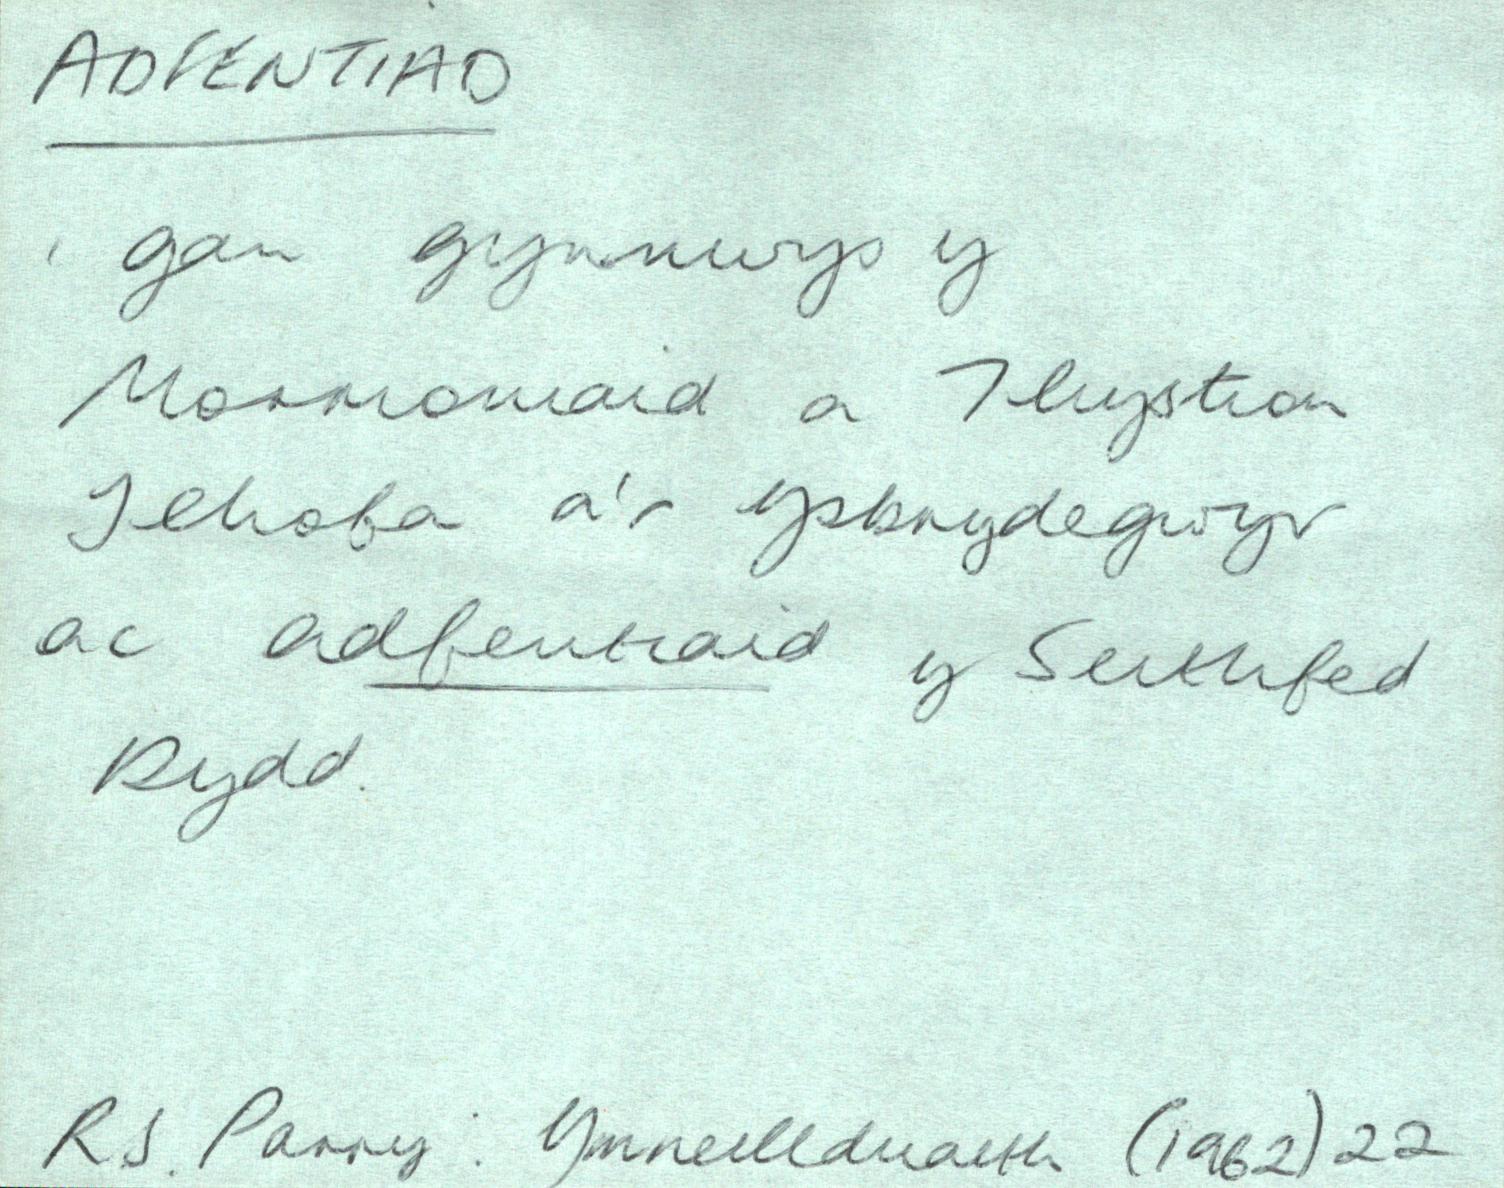 ADFENTIAD
, gan gynnwys y
Mormoniaid a Thystion
Jehofa a'r ysbrydegwyr
ac adfentiaid y Seithfed
Dydd.
R.S. Parry: Ymneilltuaeth (1962) 22